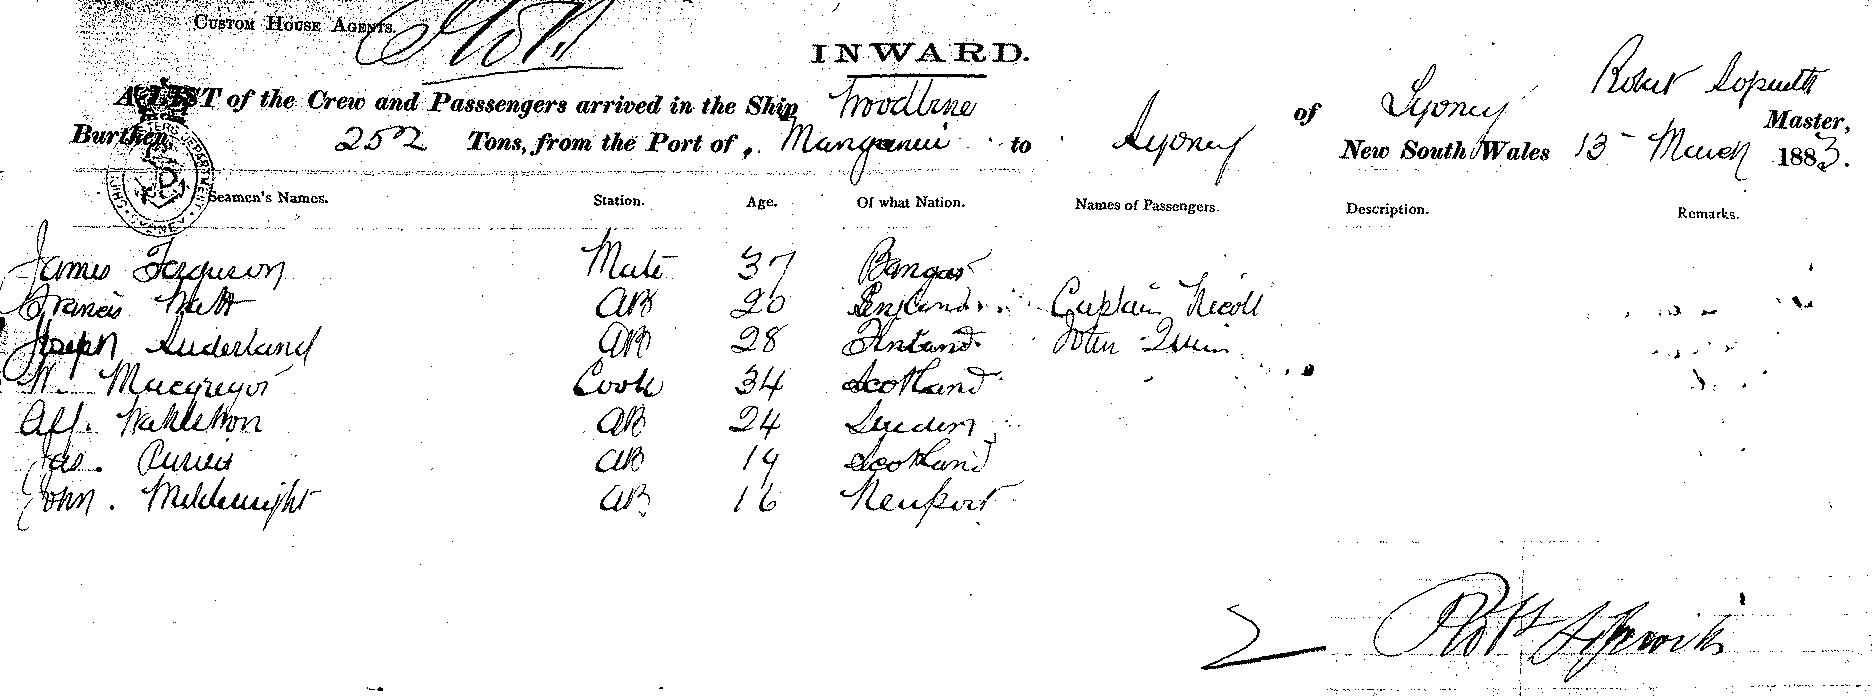 CUSTOM HOUSE AGENTS.
INWARD.
A LIST of the Crew and Passsengers arrived in the Ship Woodbine of Sydney Robert Sopwith Master,
Burthen 252 Tons, from the Port of Manganui to Sydney New South Wales 13 March 1883.
Seamen's Names. Station. Age. Of what Nation. Names of Passengers. Description. Remarks.
James Ferguson Mate 37 Bangor
Francis AB 20 England Captain Nicoll
Joseph Suderland AB 28 Finland John Quin
W. Macgregor Cook 34 Scotland
Alf. AB 24 Sweden
Jas. AB 19 Scotland
John. AB 16 Newport
Robt Sopwith